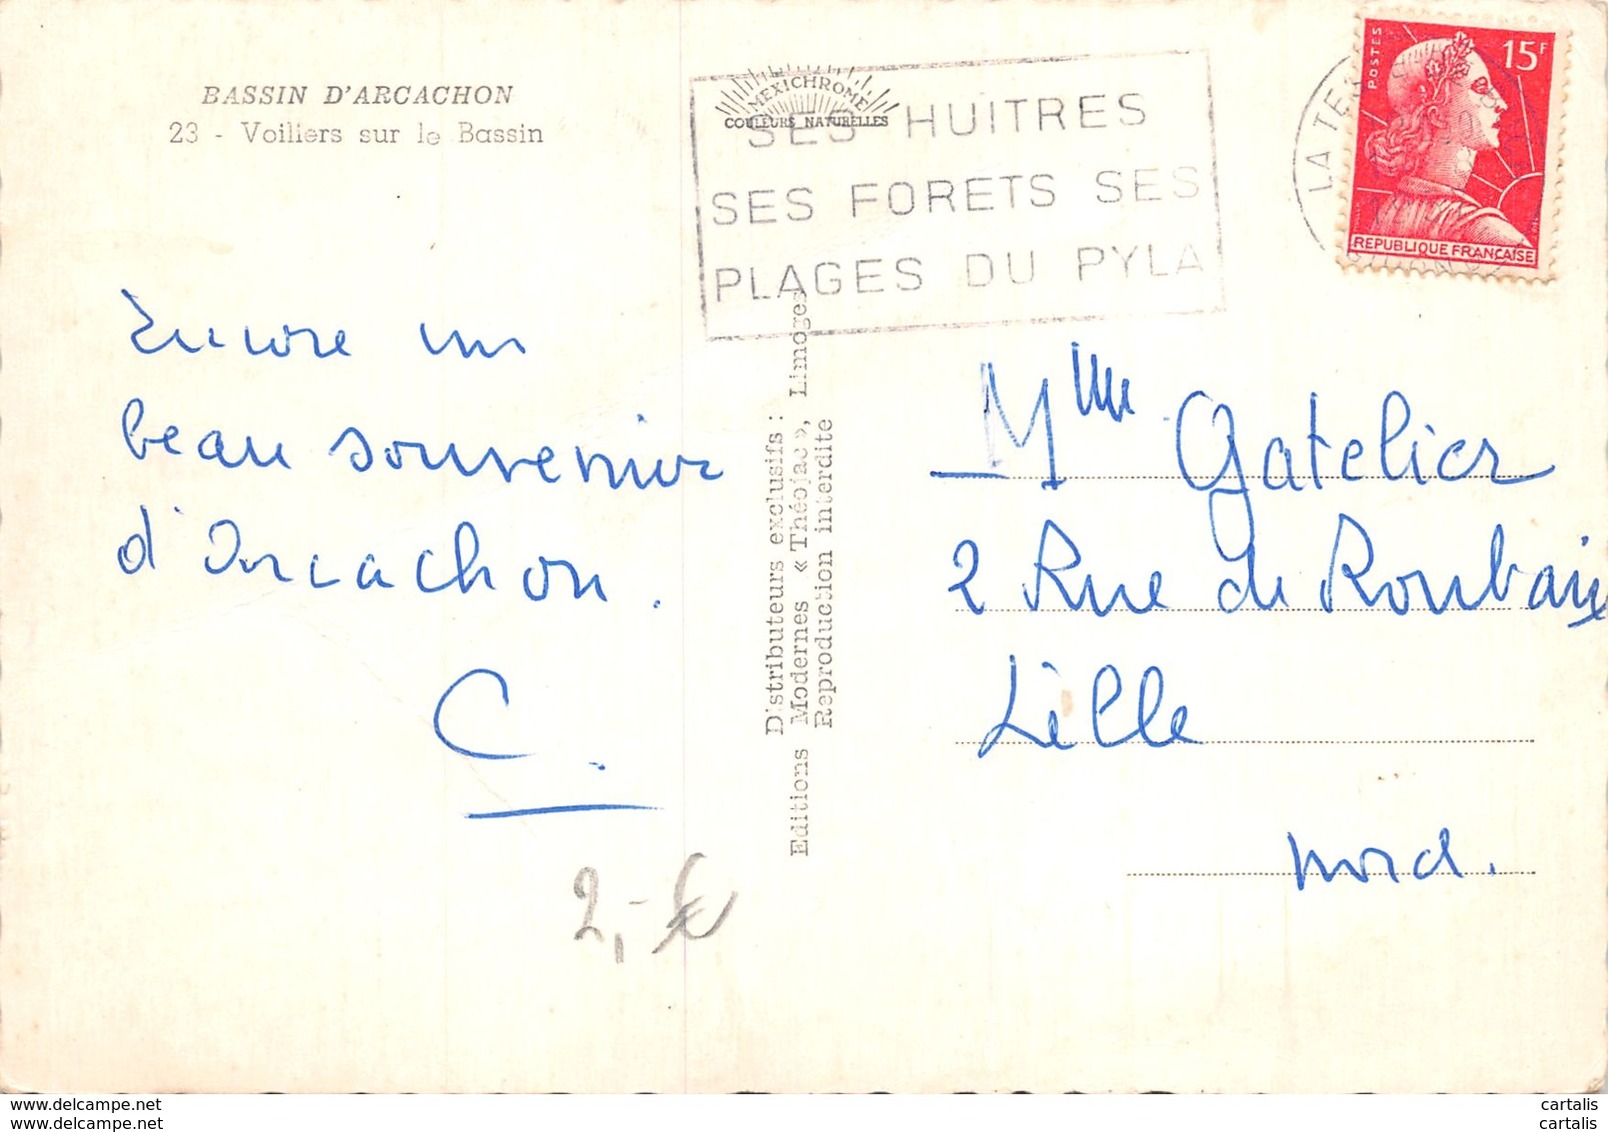 BASSIN D'ARCACHON
23 - Voiliers sur le Bassin
MEXICHROME
COULEURS NATURELLES
SES HUITRES
SES FORETS SES
PLAGES DU PYLA
LA TESTE
POSTES
15F
REPUBLIQUE FRANCAISE
Encore un
beau souvenir
d'Arcachon.
C.
2,-€
Distributeurs exclusifs :
Editions Modernes « Théojac », Limoges
Reproduction interdite
Mme Gatelier
2 Rue de Roubaix
Lille
Nord.
www.delcampe.net
www.delcampe.net
cartalis
cartalis